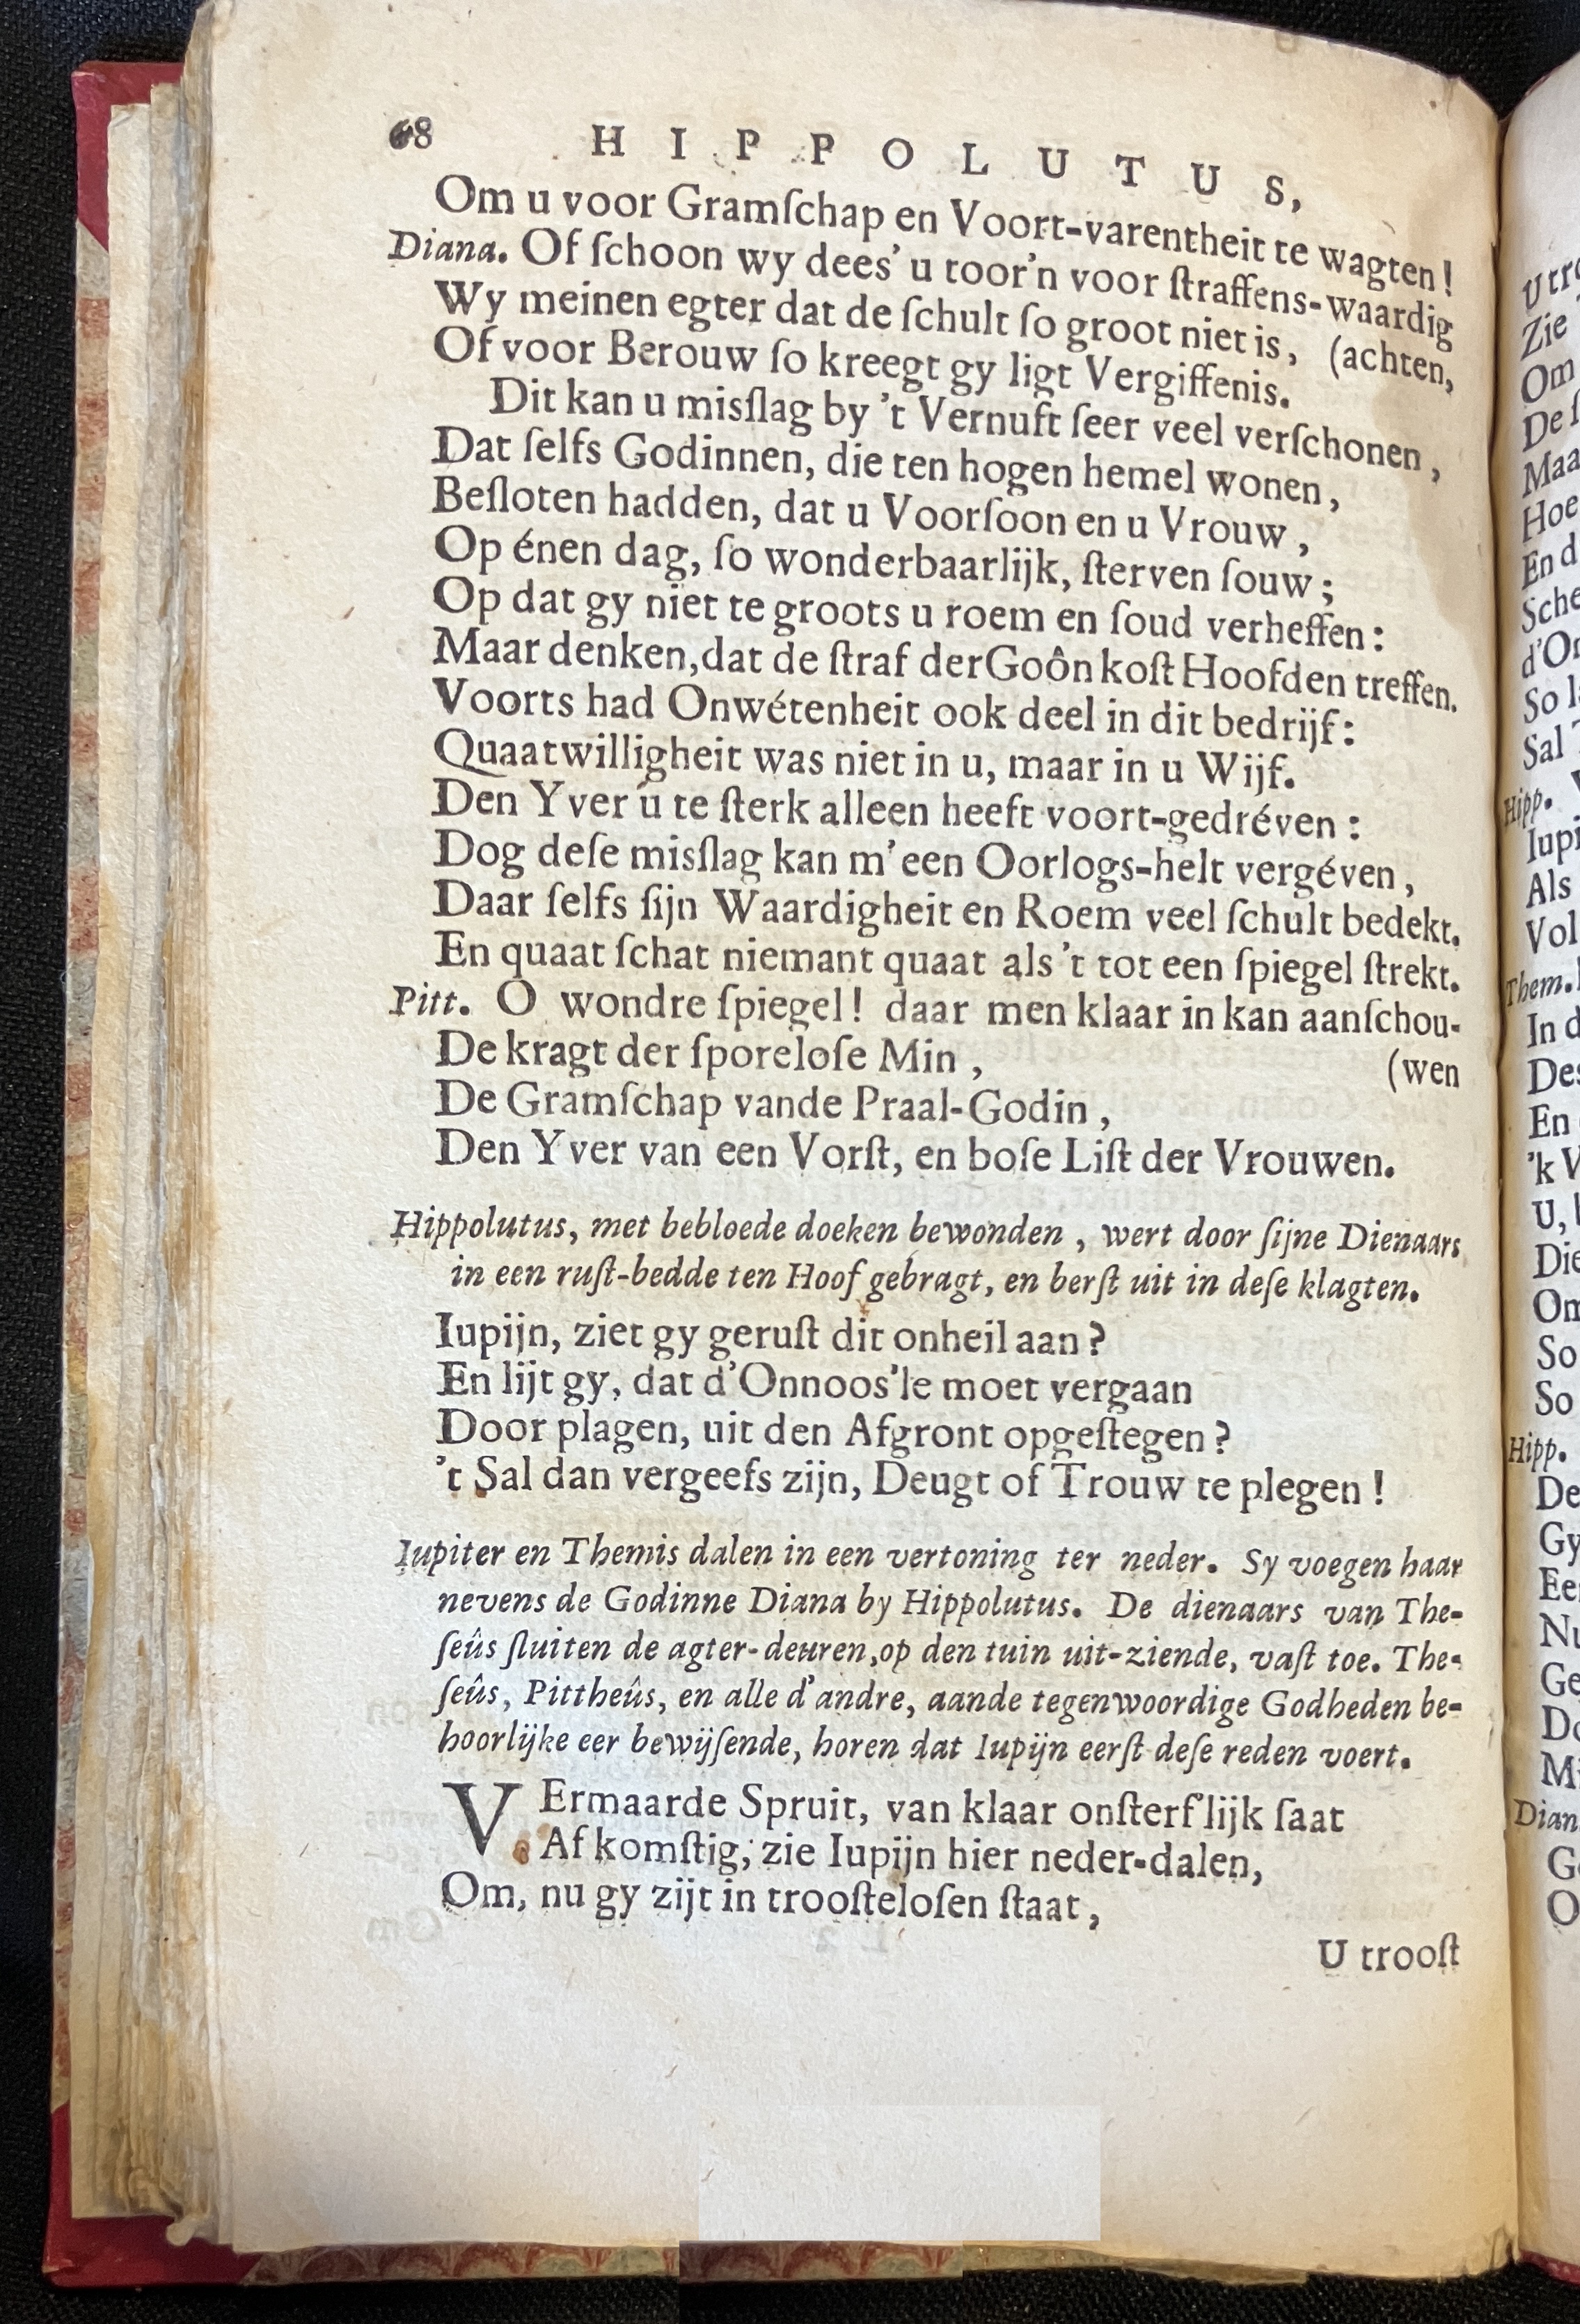 68 HIPPOLUTUS,
Om u voor Gramſchap en Voort-varentheit te wagten!
Diana. Of ſchoon wy dees' u toor'n voor ſtraffens-waardig
Wy meinen egter dat de ſchult ſo groot niet is, (achten,
Of voor Berouw ſo kreegt gy ligt Vergiffenis.
Dit kan u misſlag by 't Vernuft ſeer veel verſchonen,
Dat ſelfs Godinnen, die ten hogen hemel wonen,
Beſloten hadden, dat u Voorſoon en u Vrouw,
Op énen dag, ſo wonderbaarlijk, ſterven ſouw;
Op dat gy niet te groots u roem en ſoud verheffen:
Maar denken, dat de ſtraf der Goôn koſt Hoofden treffen.
Voorts had Onwétenheit ook deel in dit bedrijf:
Quaatwilligheit was niet in u, maar in u Wijf.
Den Yver u te ſterk alleen heeft voort-gedréven:
Dog deſe misſlag kan m' een Oorlogs-helt vergéven,
Daar ſelfs ſijn Waardigheit en Roem veel ſchult bedekt.
En quaat ſchat niemant quaat als 't tot een ſpiegel ſtrekt.
Pitt. O wondre ſpiegel! daar men klaar in kan aanſchou-
De kragt der ſporeloſe Min, (wen
De Gramſchap vande Praal-Godin,
Den Yver van een Vorſt, en boſe Liſt der Vrouwen.
Hippolutus, met bebloede doeken bewonden, wert door ſijne Dienaars
in een ruſt-bedde ten Hoof gebragt, en berſt uit in deſe klagten.
Iupijn, ziet gy geruſt dit onheil aan?
En lijt gy, dat d'Onnoos'le moet vergaan
Door plagen, uit den Afgront opgeſtegen?
't Sal dan vergeefs zijn, Deugt of Trouw te plegen!
Iupiter en Themis dalen in een vertoning ter neder. Sy voegen haar
nevens de Godinne Diana by Hippolutus. De dienaars van The-
ſeûs ſluiten de agter-deuren, op den tuin uit-ziende, vaſt toe. The-
ſeûs, Pittheûs, en alle d'andre, aande tegenwoordige Godheden be-
hoorlijke eer bewijſende, horen dat Iupijn eerſt deſe reden voert.
VErmaarde Spruit, van klaar onſterf'lijk ſaat
Af komſtig; zie Iupijn hier neder-dalen,
Om, nu gy zijt in trooſteloſen ſtaat,
U trooſt